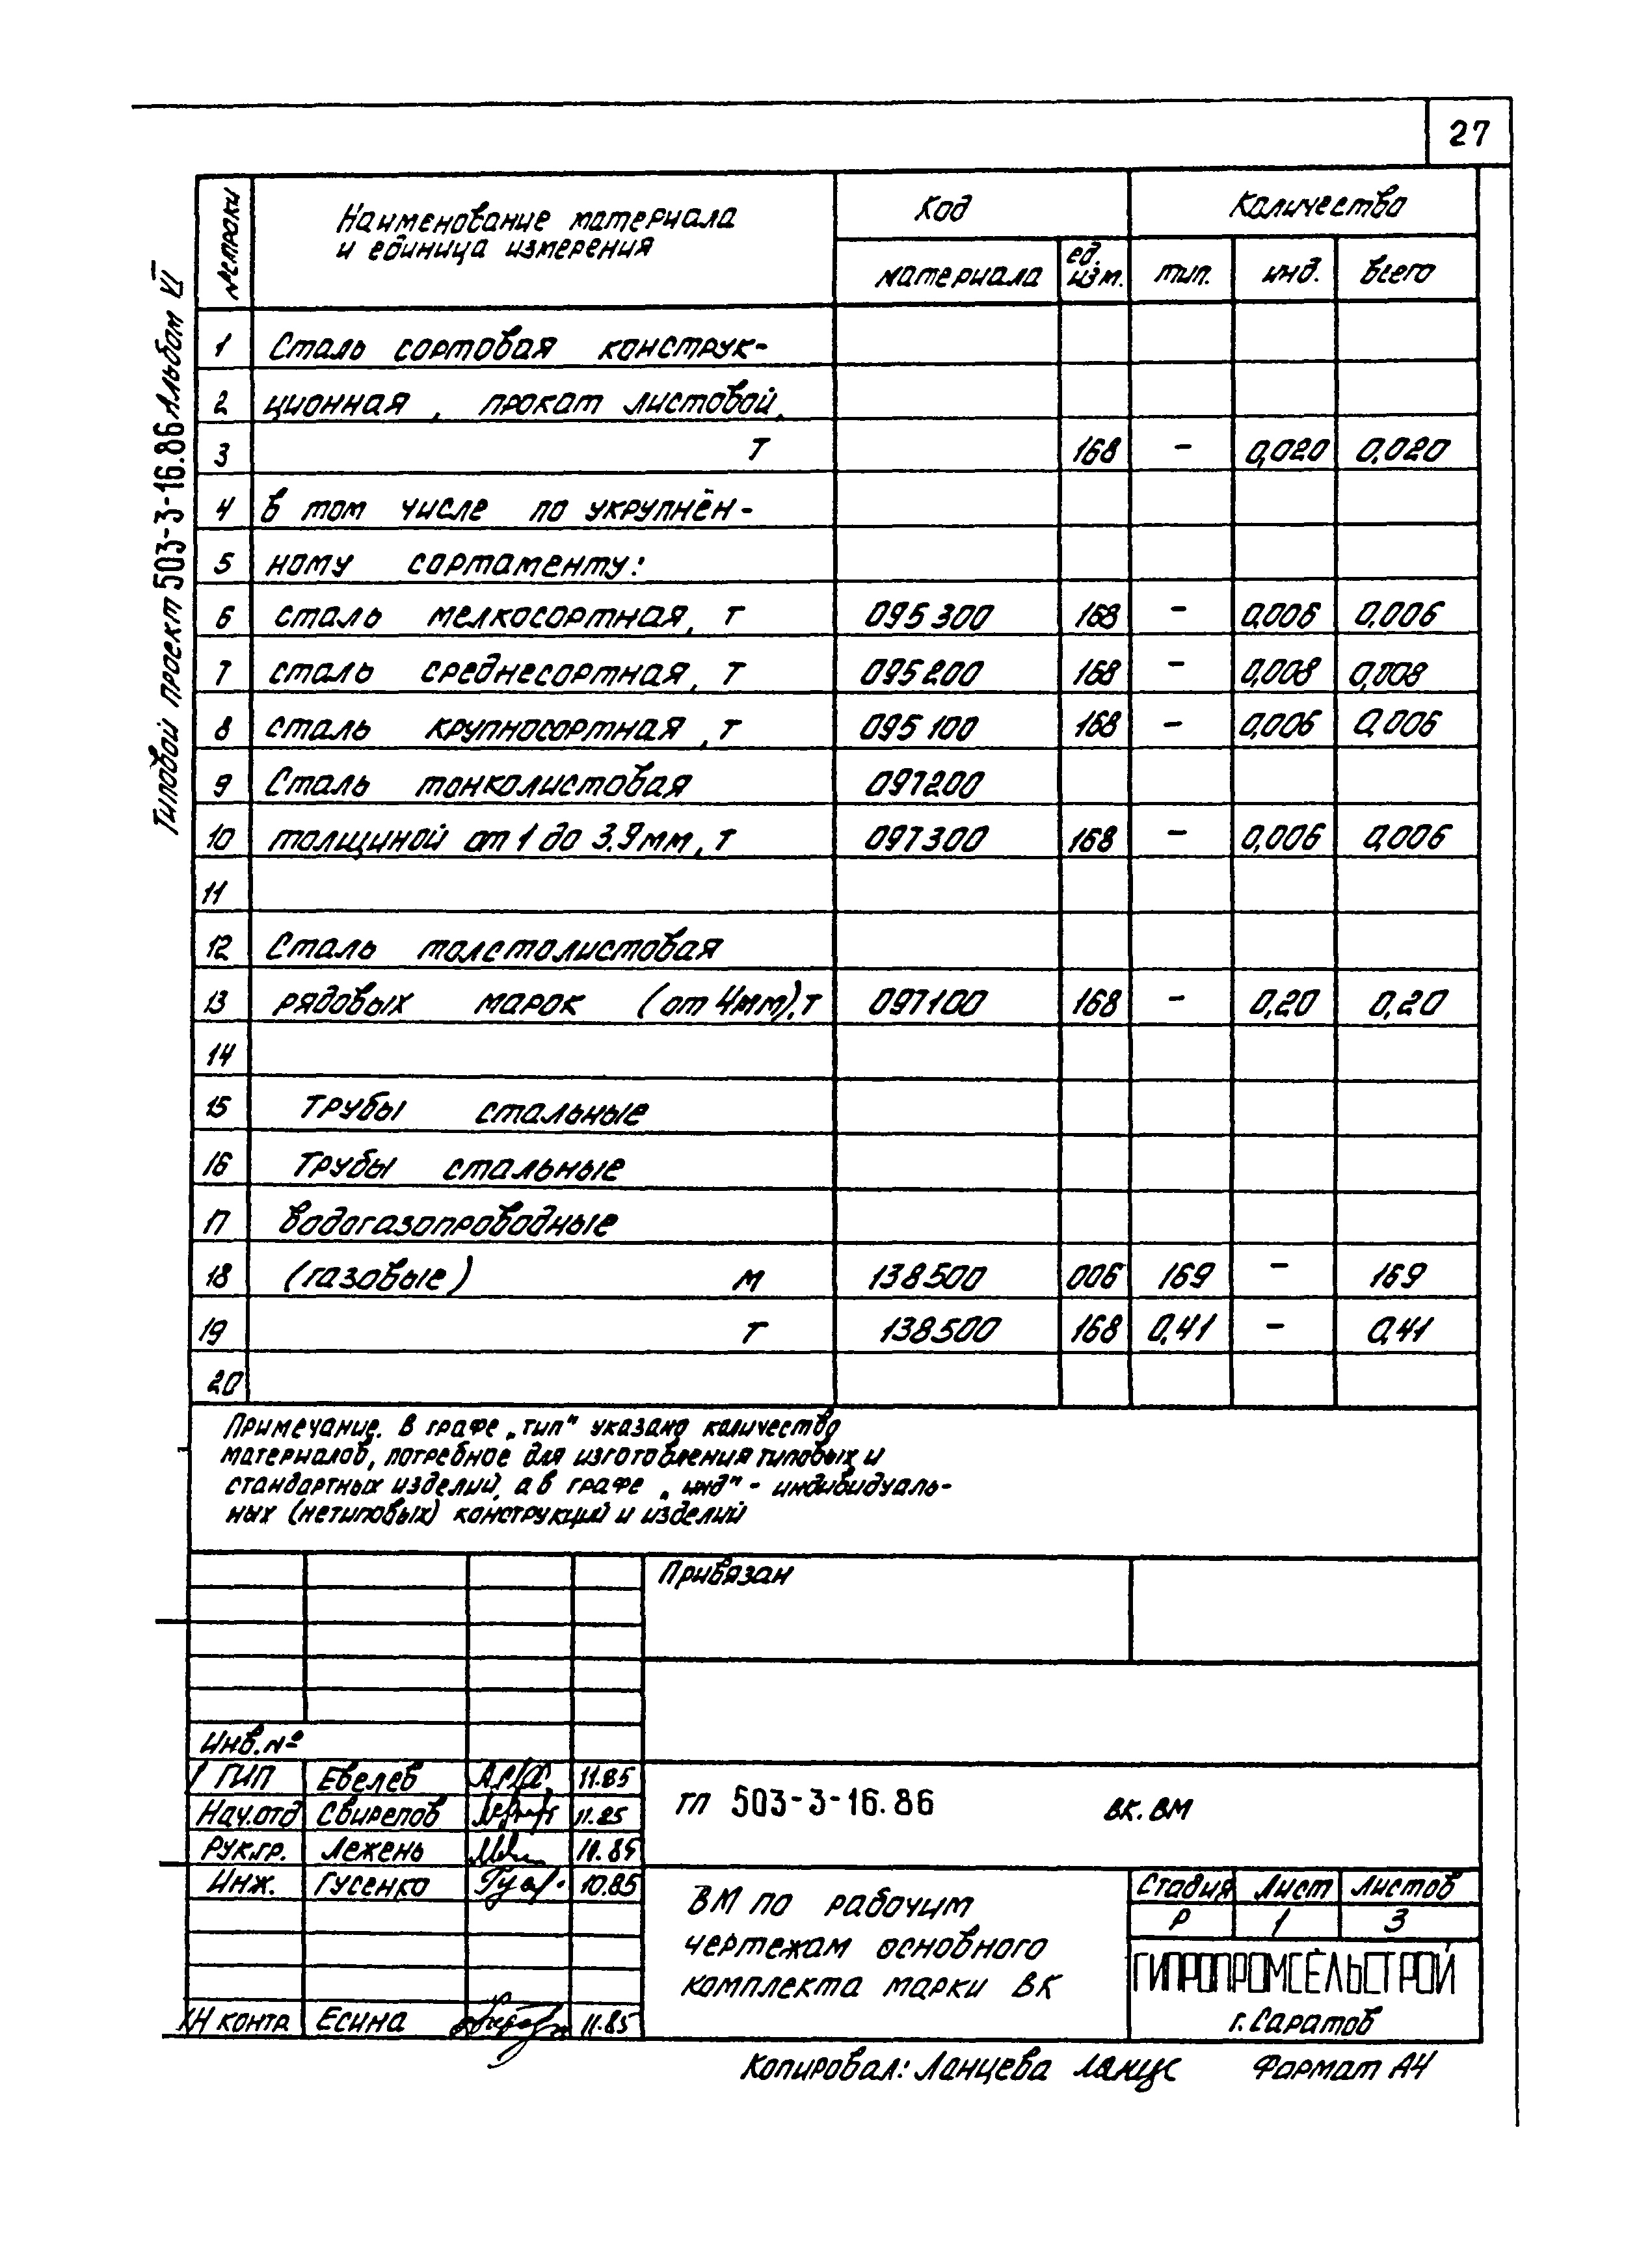 27
Типовой проект 503-3-16.86 Альбом VI
№ строки Наименование материала и единица измерения Код Количество
материала ед. изм. тип. инд. всего
1 Сталь сортовая конструк-
2 ционная, прокат листовой,
3 т 168 - 0,020 0,020
4 в том числе по укрупнён-
5 ному сортаменту:
6 сталь мелкосортная, т 095300 168 - 0,006 0,006
7 сталь среднесортная, т 095200 168 - 0,008 0,008
8 сталь крупносортная, т 095100 168 - 0,006 0,006
9 Сталь тонколистовая 097200
10 толщиной от 1 до 3.9 мм, т 097300 168 - 0,006 0,006
11
12 Сталь толстолистовая
13 рядовых марок (от 4мм), т 097100 168 - 0,20 0,20
14
15 Трубы стальные
16 Трубы стальные
17 водогазопроводные
18 (газовые) м 138500 006 169 - 169
19 т 138500 168 0,41 - 0,41
20
Примечание. В графе „тип" указано количество
материалов, потребное для изготовления типовых и
стандартных изделий, а в графе „инд" - индивидуаль-
ных (нетиповых) конструкций и изделий
Привязан
Инв. №
ГИП Евелев 11.85
Нач.отд Свирепов 11.85
Рук.гр. Лежень 11.85
Инж. Гусенко 10.85
Н контр Есина 11.85
тп 503-3-16.86 ВК.ВМ
ВМ по рабочим
чертежам основного
комплекта марки ВК
Стадия Лист Листов
Р 1 3
ГИПРОПРОМСЕЛЬСТРОЙ
г. Саратов
Копировал: Ланцева Формат А4